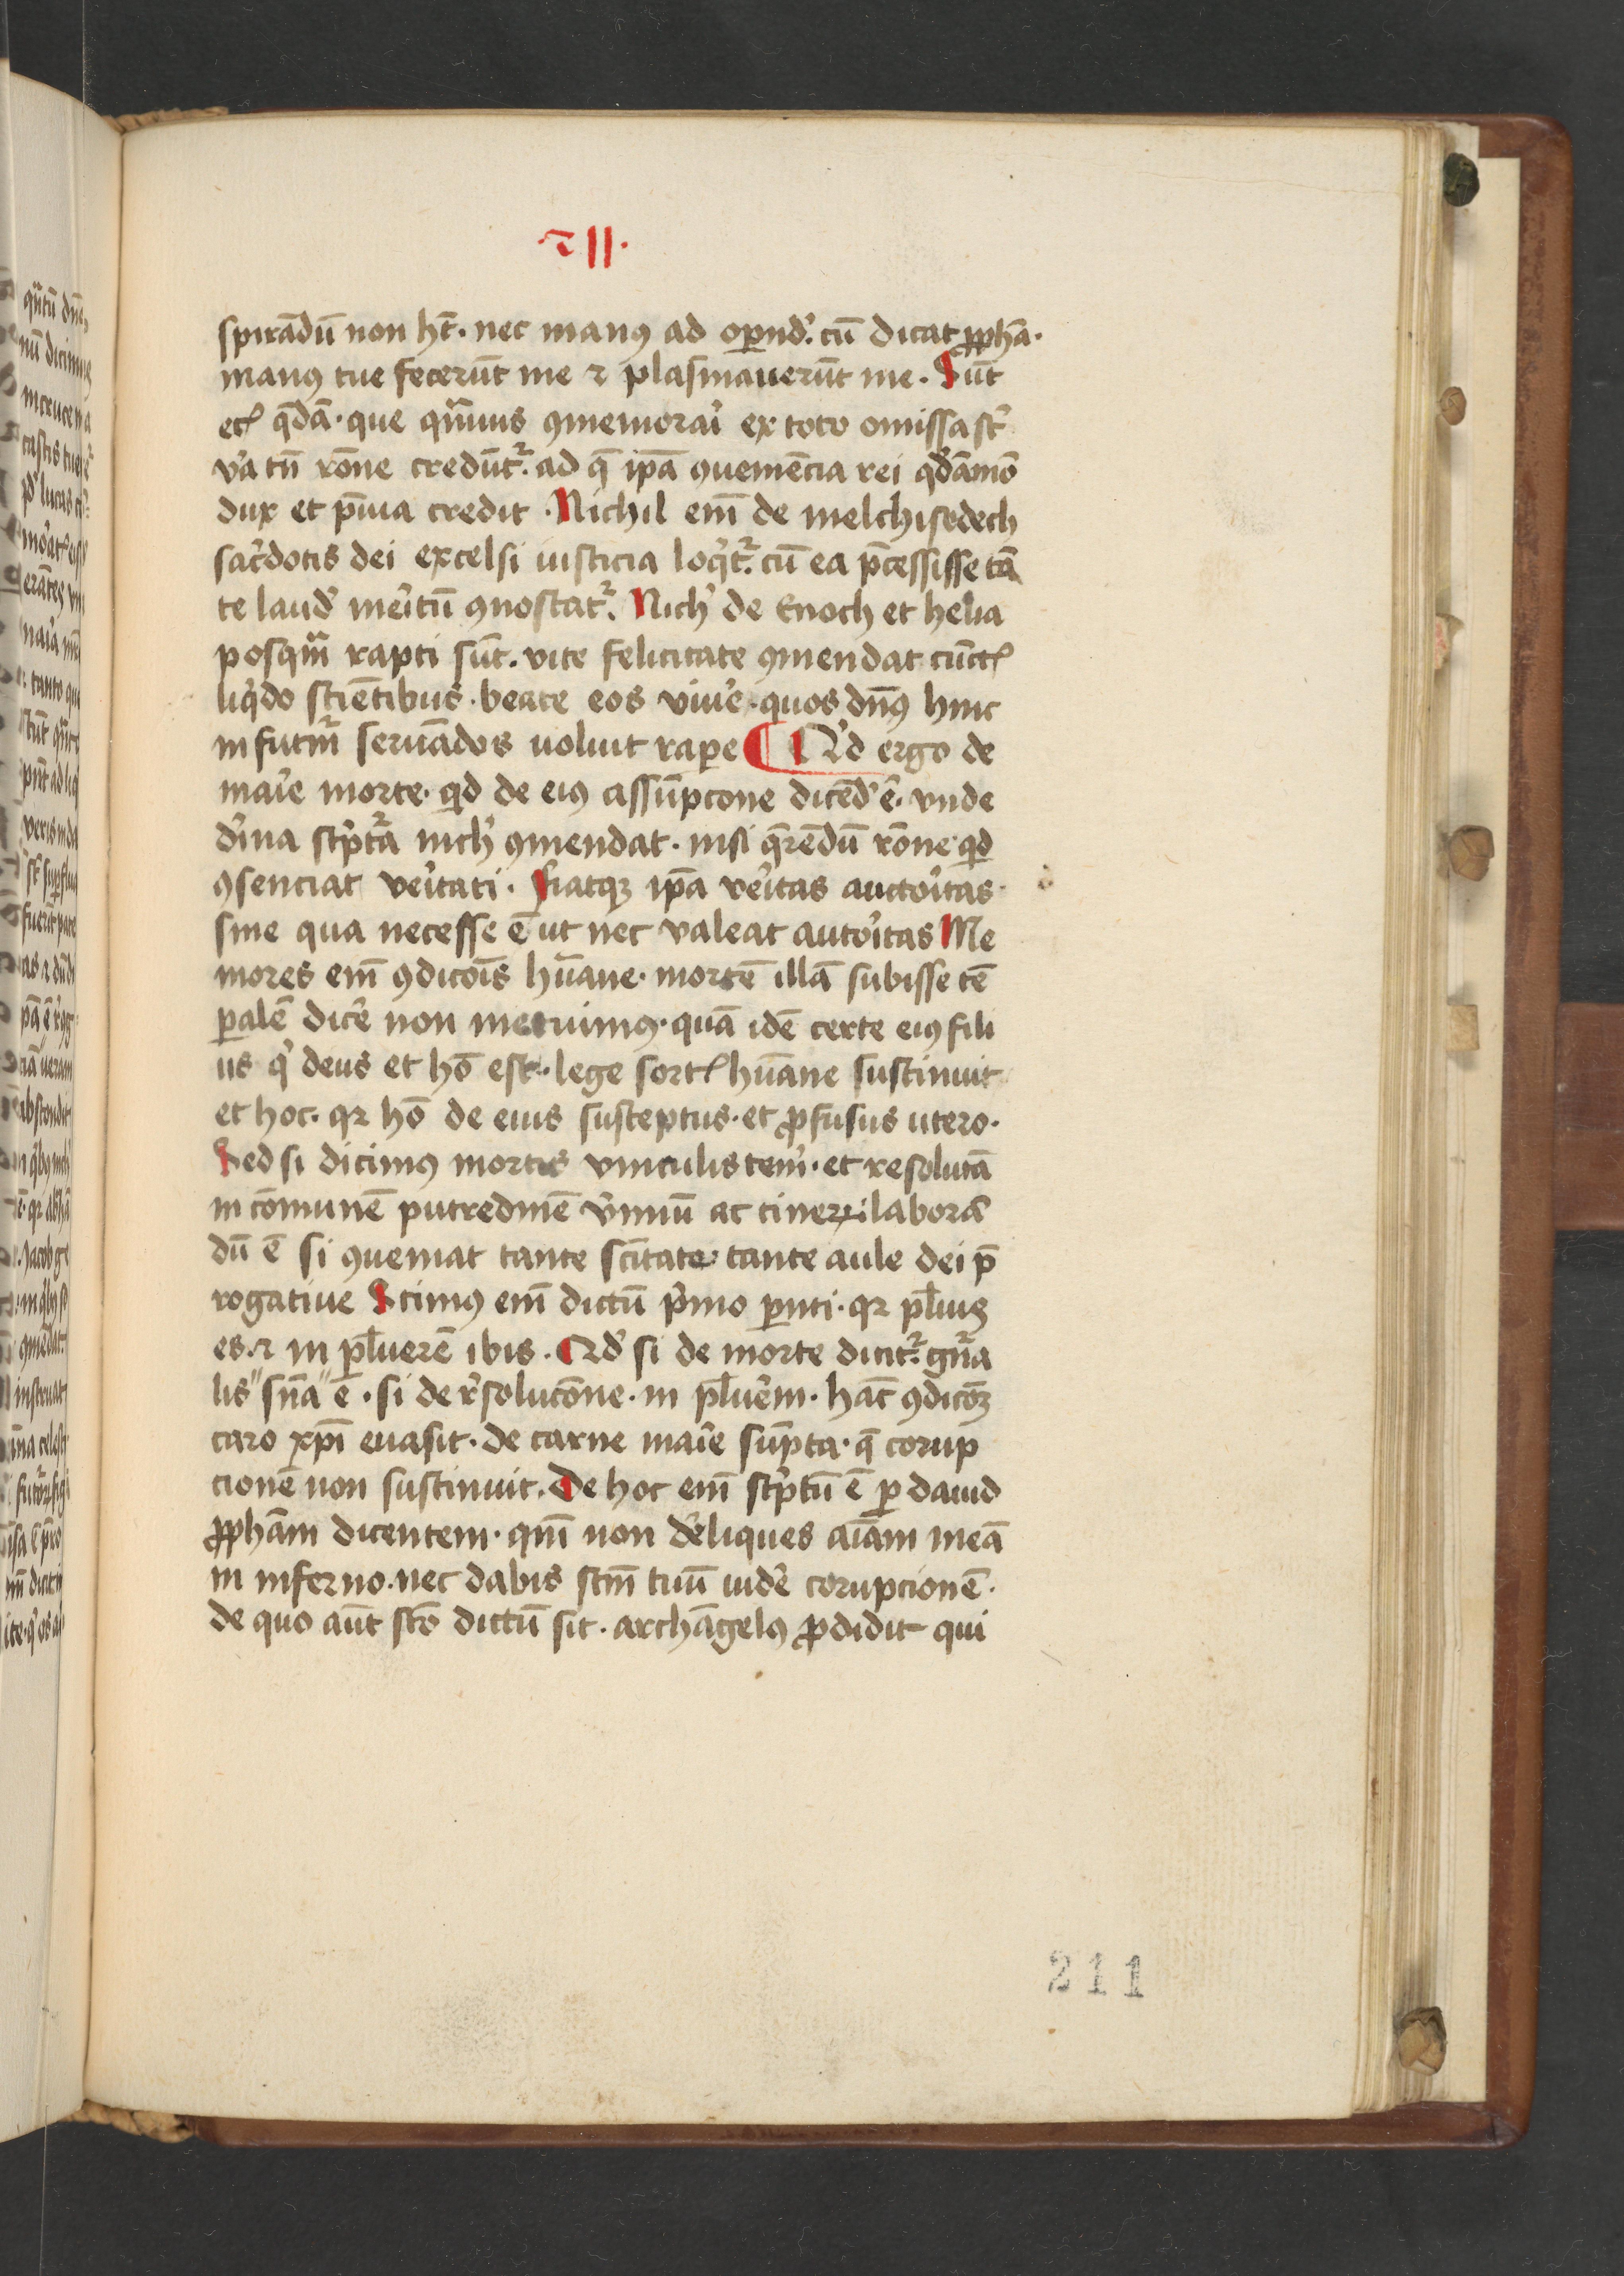 ·ꝛ11·
spirādū non hēt· nec manꝰ ad opand̛· cū dicat ꝓpha·
manꝰ tue fecerūt me ⁊ plasmauerūt me· Sūt
etꝭ qdā· que qͣmuis ꝯmemorai̛ ex toto omissa st̛
va̛ tn̄ rōne credūtr̛· ad qᷓ ipā ꝯueniēcia rei qdāmō
dux et p̄uia credit· Nichil em̄ de melchisedech
sac̛dotis dei excelsi iusticia loqͥtr̛· cū ea p̄cessisse tā
te laud̛ mei̛tū ꝯnostatr̛· Nich̛ de Enoch et helia
posqͣm rapti sūt· vite felicitate ꝯmendat cūctꝭ
liqͥdo sciētibus· beate eos viue̛· quos dn̄ꝰ hinc
in futm̛ seruādos uoluit rape ¶ Qͥd ergo de
mai̛e morte· qͥd de eiꝰ assūpcone dicēd̛ ē· vnde
di̛na scͥptͣa nich̛ ꝯmendat· nisi qͣrēdū rōne qͥd
ꝯsenciat vei̛tati· fiatqꝫ ipā vei̛tas auctoi̛tas·
sine qua necesse ē ut nec valeat autoi̛tas Me
mores em̄ ꝯdicōis hūane· mortē illā subisse tē
palē dice̛ non metuimꝰ· quā idē certe eiꝰ fili
us qͥ deus et hō est· lege sortꝭ hūane sustinuit
et hoc· qꝛ hō de eius susceptus· et ꝓfusus utero·
Sed si dicimꝰ mortis vinculis teni̛· et resolutā
in cōmunē putredinē v̛miū ac cineri laborā
dū ē si ꝯueniat tante scītate tante aule dei p̄
rogatiue Scimꝰ em̄ dictū pͥmo pnti· qꝛ pluis
es ⁊ in pluerē ibis· Qd̛ si de morte dicitr̛· gn̛a
lis "sn̄a" ē· si de rͤsolucōne· in plue̛m· hāc ꝯdicōꝫ
caro xp̄i euasit· de carne mai̛e sūpta· qᷓ corup
cionē non sustinuit· De hoc em̄ scͥptū ē p dauid
ꝓphām dicentem· qm̄ non deͤliques aīam meā
in inferno· nec dabis sc̄m tuū uide̛ corupcionē·
de quo aūt scō dictū sit· archāgelꝰ ꝓdidit qui
211